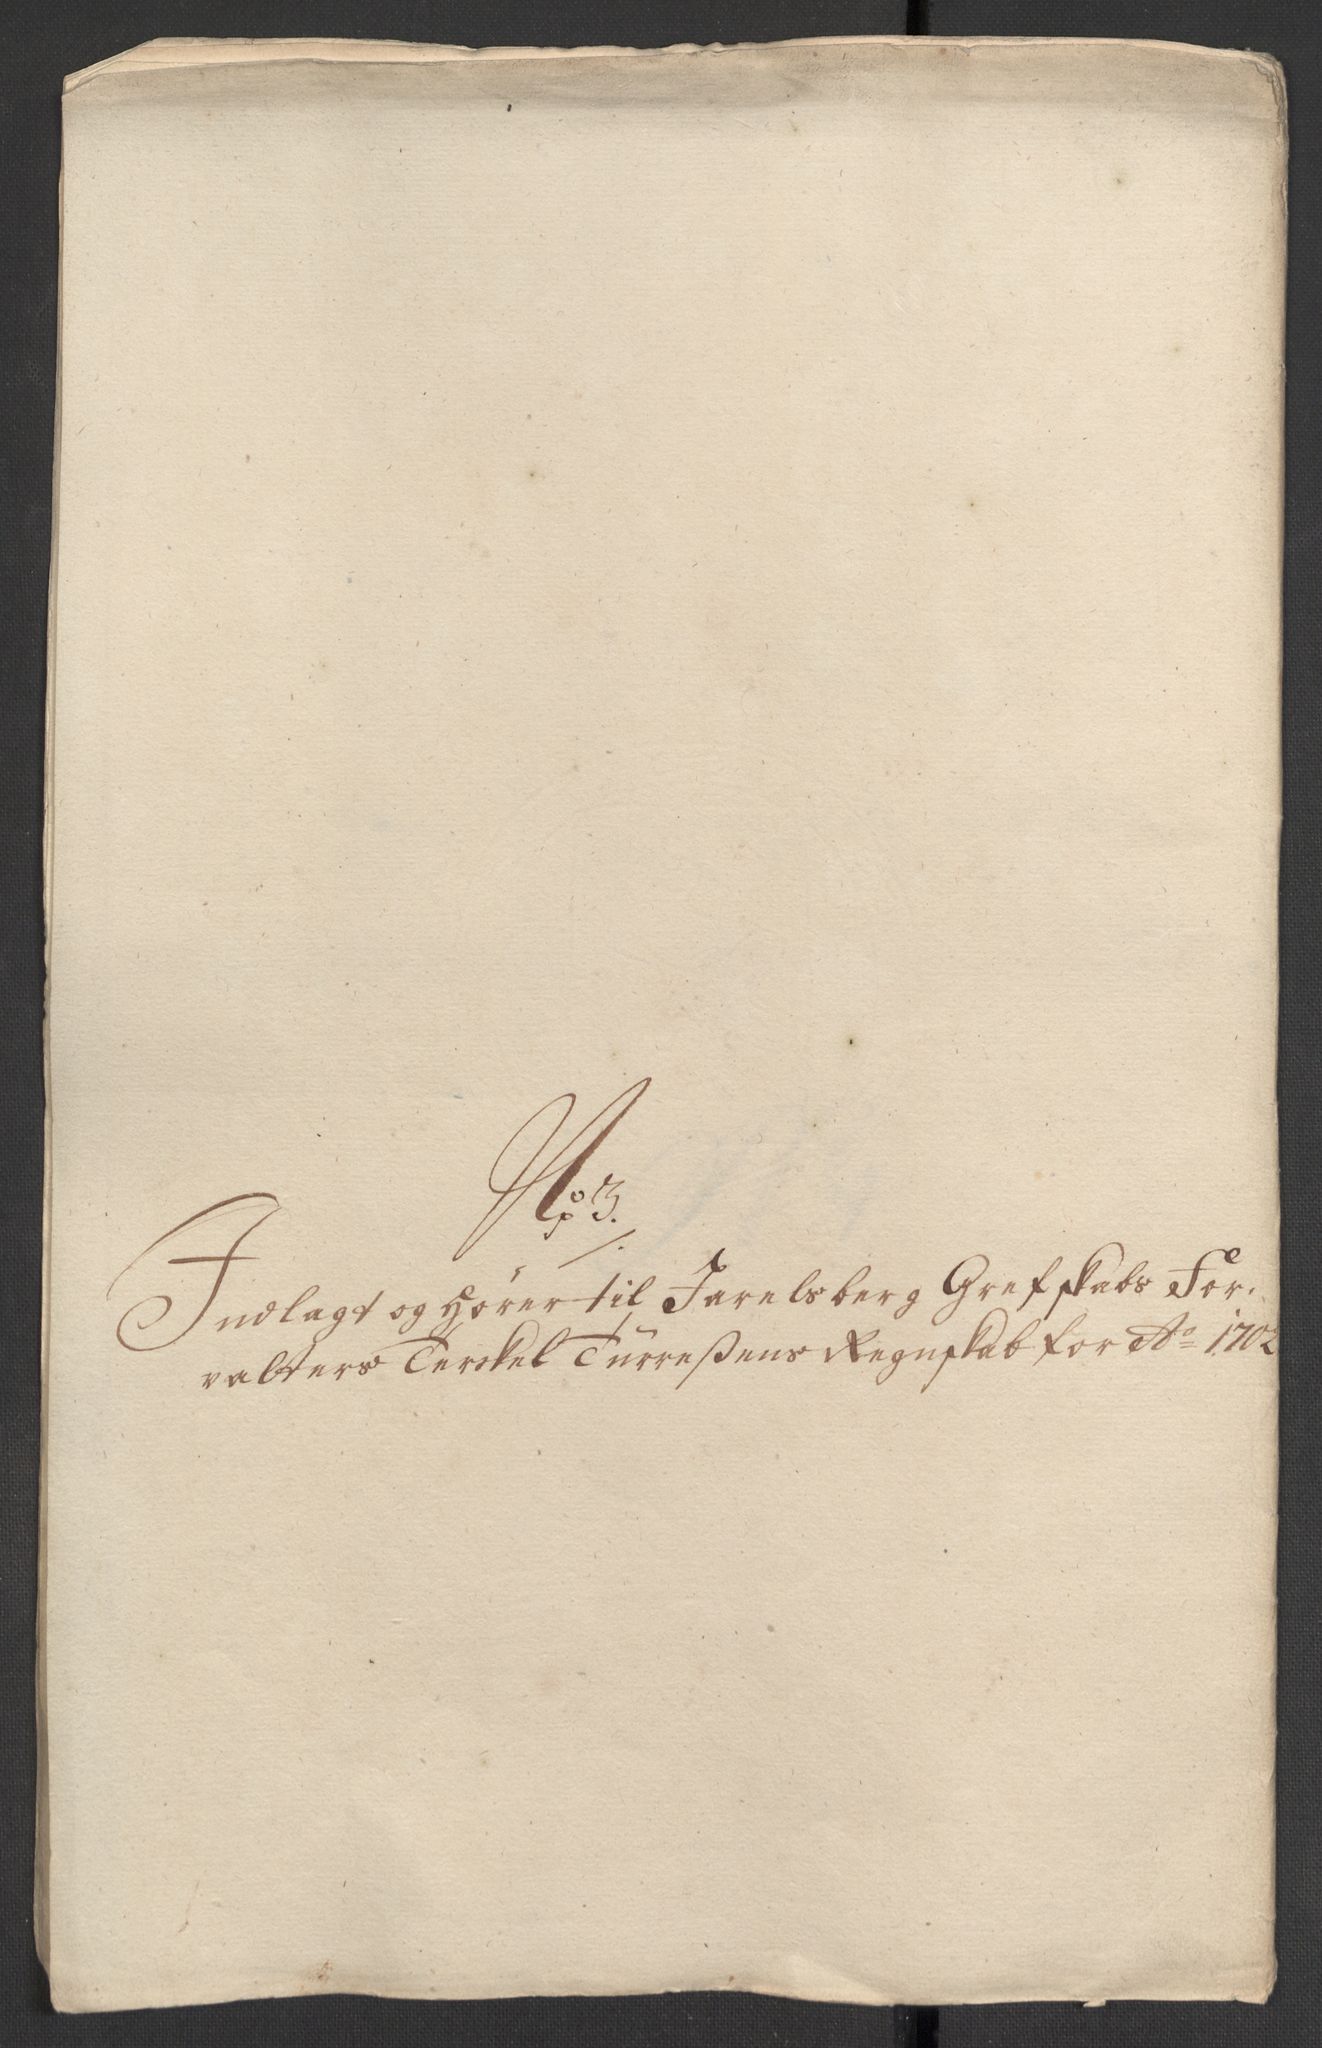 No 3.
Indlagt og hører til Jarelsberg Grefskabs For-
valters Terckel Turreßens Regnskab for Ao 1702